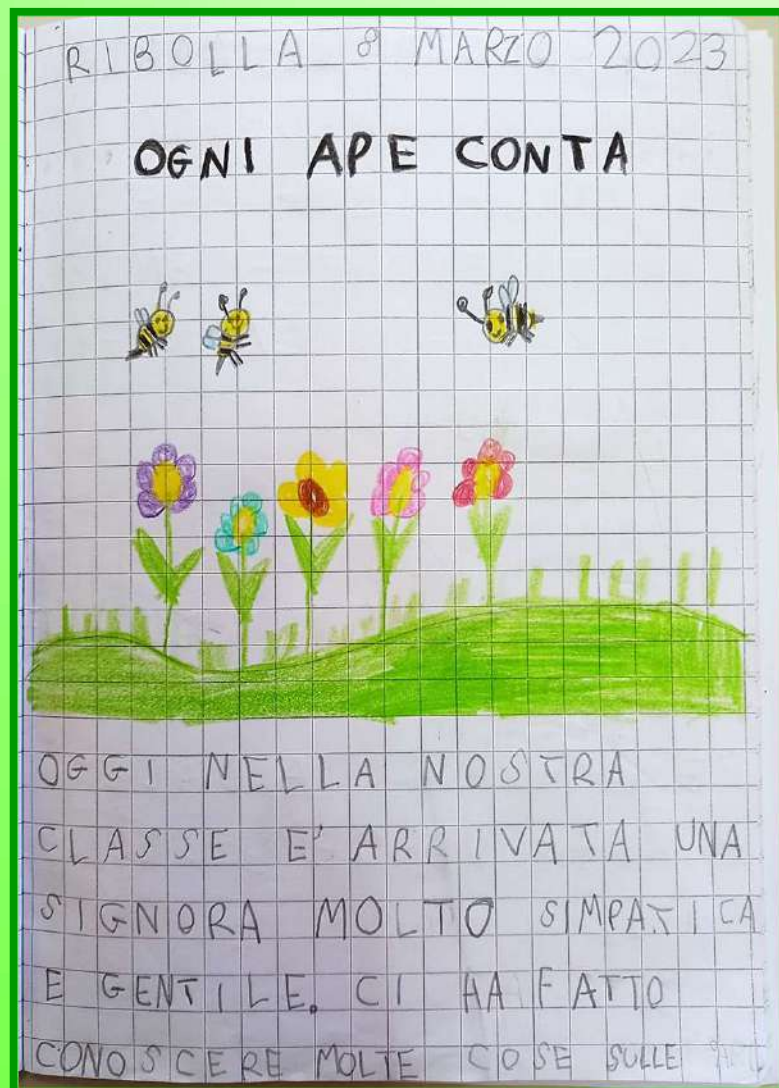 RIBOLLA 8 MARZO 2023
OGNI APE CONTA
OGGI NELLA NOSTRA
CLASSE E' ARRIVATA UNA
SIGNORA MOLTO SIMPATICA
E GENTILE. CI HA FATTO
CONOSCERE MOLTE COSE SULLE